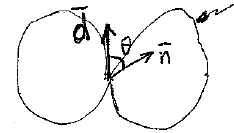 d̄ θ n̄